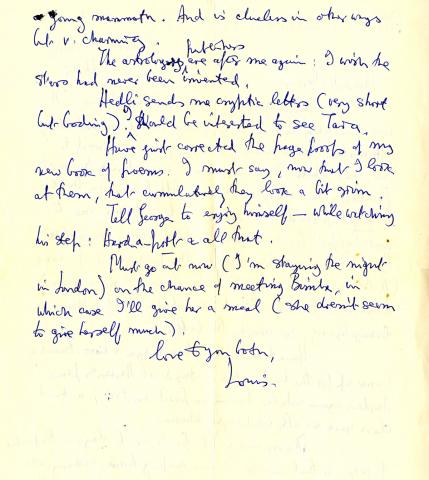 a young mammoth. And is clueless in other ways
but v. charming.
publishers
The astrology are after me again: I wish the
stars had never been invented.
Hedli sends me cryptic letters (very short
but boding). I should be interested to see Tara.
Have just corrected the page proofs of my
new book of poems. I must say, now that I look
at them, that cumulatively they look a bit grim.
Tell George to enjoy himself — while watching
his step: Hard-a-port & all that.
Must go out now (I'm staying the night
in London) on the chance of meeting Bimba, in
which case I'll give her a meal (she doesn't seem
to give herself much).
love to you both,
Louis.